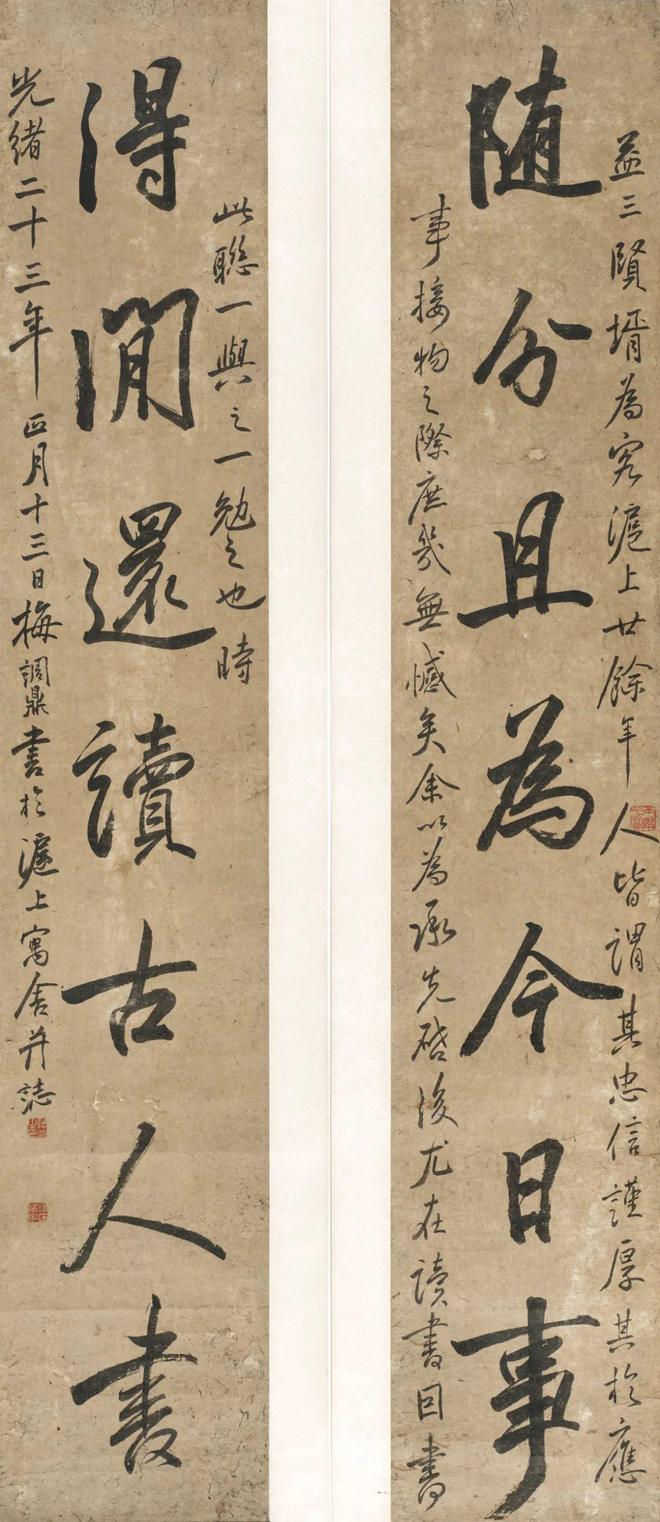 益三賢壻為客滬上廿餘年人皆謂其忠信謹厚其於應
隨分且為今日事
事接物之際庶幾無憾矣余以為承先啓後尤在讀書因書
此聯一與之一勉之也時
得閒還讀古人書
光緒二十三年正月十三日梅調鼎書於滬上寓舍并誌